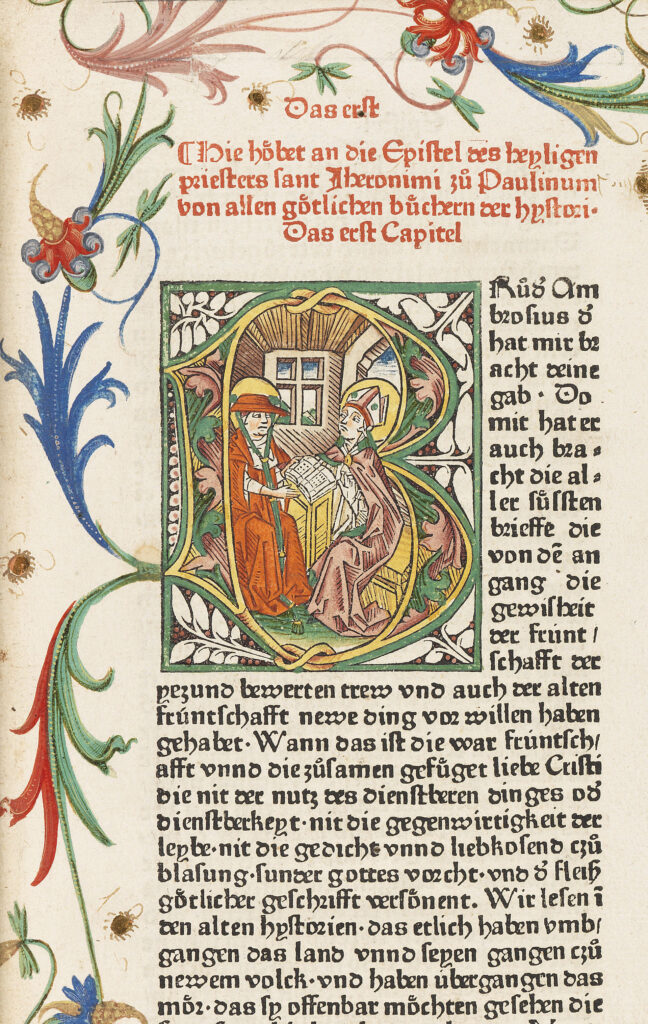 Das erst
Hie hoͤbet an die Epistel des heyligen
priesters sant Jheronimi zuͦ Paulinum
von allen goͤtlichen buͤchern der hystori·
Das erst Capitel
B
Ruͦd᷑ Am
brosius d᷑
hat mir br
acht deine
gab · Do
mit hat er
auch bra⸗
cht die al⸗
ler suͤssten
brieffe die
von dē an
gang die
gewisheit
der frúnt /
schafft der
yezund bewerten trew vnd auch der alten
frúntschafft newe ding vor willen haben
gehabet · Wann das ist die war frúntsch/
afft vnnd die zuͦsamen gefuͤget liebe Cristi
die nit der nutz des dienstberen dinges od᷑
dienstberkeyt · nit die gegenwirtigkeit der
leybe · nit die gedicht vnnd liebkosend czuͦ
blasung · sunder gottes vorcht · vnd d᷑ fleiß
goͤtlicher geschrifft versoͤnent. Wir lesen ī
den alten hystorien · das etlich haben vmb/
gangen das land vnnd seyen gangen czuͦ
newem volck · vnd haben úbergangen das
moͤr · das sy offenbar moͤchten gesehen die